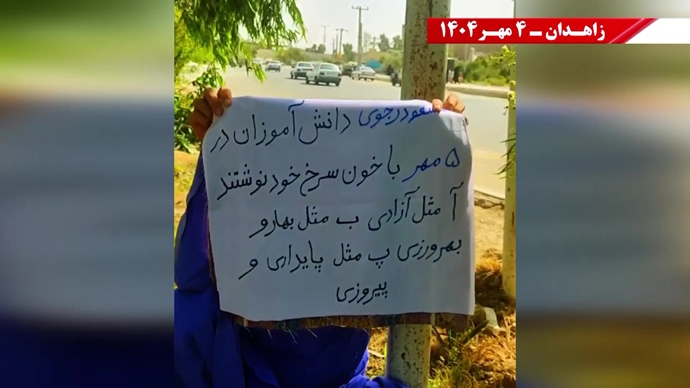 زاهـدان ـ ۴ مهر ۱۴۰۴
مسعود رجوی دانش آموزان در
۵ مهر با خون سرخ خود نوشتند
آ مثل آزادی ب مثل بهار و
بهروزی پ مثل پایداری و
پیروزی